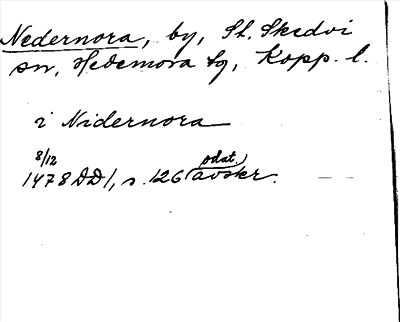 Nedernora, by, St. Skedvi
sn, Hedemora tg, Kopp. l.
i Nidernora
8/12
1478 DD1, s. 126 odat. avskr.